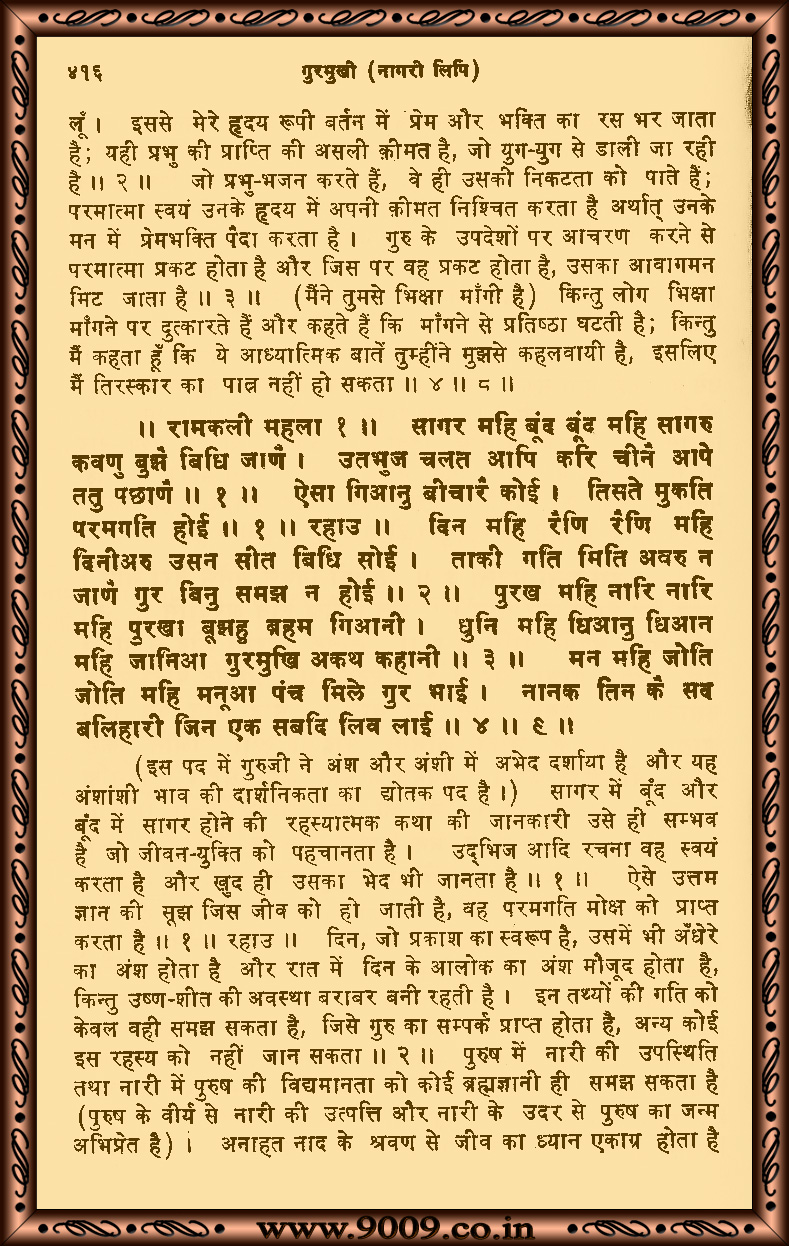 ४१६ गुरमुखी (नागरी लिपि)
लूँ। इससे मेरे हृदय रूपी बर्तन में प्रेम और भक्ति का रस भर जाता
है; यही प्रभु की प्राप्ति की असली क़ीमत है, जो युग-युग से डाली जा रही
है ॥ २ ॥ जो प्रभु-भजन करते हैं, वे ही उसकी निकटता को पाते हैं;
परमात्मा स्वयं उनके हृदय में अपनी क़ीमत निश्चित करता है अर्थात् उनके
मन में प्रेमभक्ति पैदा करता है। गुरु के उपदेशों पर आचरण करने से
परमात्मा प्रकट होता है और जिस पर वह प्रकट होता है, उसका आवागमन
मिट जाता है ॥ ३ ॥ (मैंने तुमसे भिक्षा माँगी है) किन्तु लोग भिक्षा
माँगने पर दुत्कारते हैं और कहते हैं कि माँगने से प्रतिष्ठा घटती है; किन्तु
मैं कहता हूँ कि ये आध्यात्मिक बातें तुम्हींने मुझसे कहलवायी है, इसलिए
मैं तिरस्कार का पात्र नहीं हो सकता ॥ ४ ॥ ८ ॥
॥ रामकली महला १ ॥ सागर महि बूंद बूंद महि सागरु
कवणु बुझै बिधि जाणै। उतभुज चलत आपि करि चीनै आपे
ततु पछाणै ॥ १ ॥ ऐसा गिआनु बीचारै कोई। तिसते मुकति
परमगति होई ॥ १ ॥ रहाउ ॥ दिन महि रैणि रैणि महि
दिनीअरु उसन सीत बिधि सोई। ताकी गति मिति अवरु न
जाणै गुर बिनु समझ न होई ॥ २ ॥ पुरख महि नारि नारि
महि पुरखा बूझहु ब्रहम गिआनी। धुनि महि धिआनु धिआन
महि जानिआ गुरमुखि अकथ कहानी ॥ ३ ॥ मन महि जोति
जोति महि मनूआ पंच मिले गुर भाई। नानक तिन कै सद
बलिहारी जिन एक सबदि लिव लाई ॥ ४ ॥ ९ ॥
(इस पद में गुरुजी ने अंश और अंशी में अभेद दर्शाया है और यह
अंशांशी भाव की दार्शनिकता का द्योतक पद है।) सागर में बूंद और
बूंद में सागर होने की रहस्यात्मक कथा की जानकारी उसे ही सम्भव
है जो जीवन-युक्ति को पहचानता है। उद्‌भिज आदि रचना वह स्वयं
करता है और खुद ही उसका भेद भी जानता है ॥ १ ॥ ऐसे उत्तम
ज्ञान की सूझ जिस जीव को हो जाती है, वह परमगति मोक्ष को प्राप्त
करता है ॥ १ ॥ रहाउ ॥ दिन, जो प्रकाश का स्वरूप है, उसमें भी अँधेरे
का अंश होता है और रात में दिन के आलोक का अंश मौजूद होता है,
किन्तु उष्ण-शीत की अवस्था बराबर बनी रहती है। इन तथ्यों की गति को
केवल वही समझ सकता है, जिसे गुरु का सम्पर्क प्राप्त होता है, अन्य कोई
इस रहस्य को नहीं जान सकता ॥ २ ॥ पुरुष में नारी की उपस्थिति
तथा नारी में पुरुष की विद्यमानता को कोई ब्रह्मज्ञानी ही समझ सकता है
(पुरुष के वीर्य से नारी की उत्पत्ति और नारी के उदर से पुरुष का जन्म
अभिप्रेत है)। अनाहत नाद के श्रवण से जीव का ध्यान एकाग्र होता है
www.9009.co.in